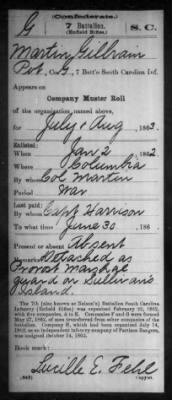 (Confederate.)
G 7 Battalion. S. C.
(Enfield Rifles.)
Martin Gilvain
Pvt., Co. G, 7 Batt'n South Carolina Inf.
Appears on
Company Muster Roll
of the organization named above,
for July & Aug, 1863.
Enlisted:
When Jan 2, 1862
Where Columbia
By whom Col Martin
Period War
Last paid:
By whom Capt Harrison
To what time June 30, 186
Present or absent Absent
Remarks: Detached as
Provost Marshal
guard on Sullivan's
Island.
The 7th (also known as Nelson's) Battalion South Carolina
Infantry (Enfield Rifles) was organized February 22, 1862,
with five companies, A to E. Companies F and G were formed
May 1862, of men transferred from other companies of the
battalion. Company H, which had been organized July 14,
1862, as an independent company of Partisan Rangers,
was assigned October 14, 1862.
Book mark:
Lucille E. Fehl
(642) Copyist.